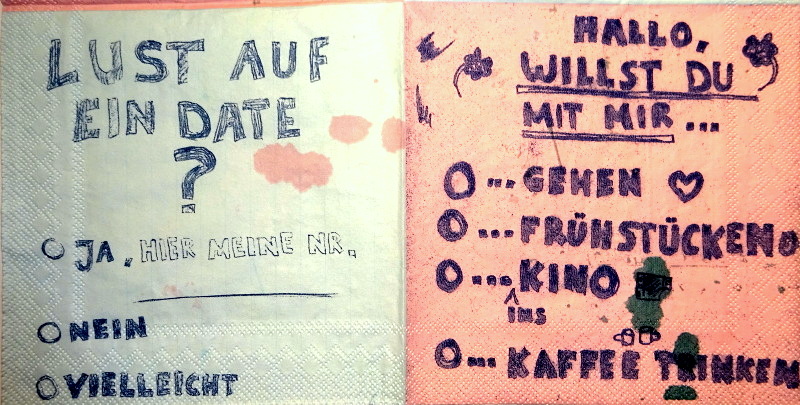 LUST AUF
EIN DATE
?
JA, HIER MEINE NR.
NEIN
VIELLEICHT
HALLO,
WILLST DU
MIT MIR ...
...GEHEN
...FRÜHSTÜCKEN
...KINO
INS
... KAFFEE TRINKEN